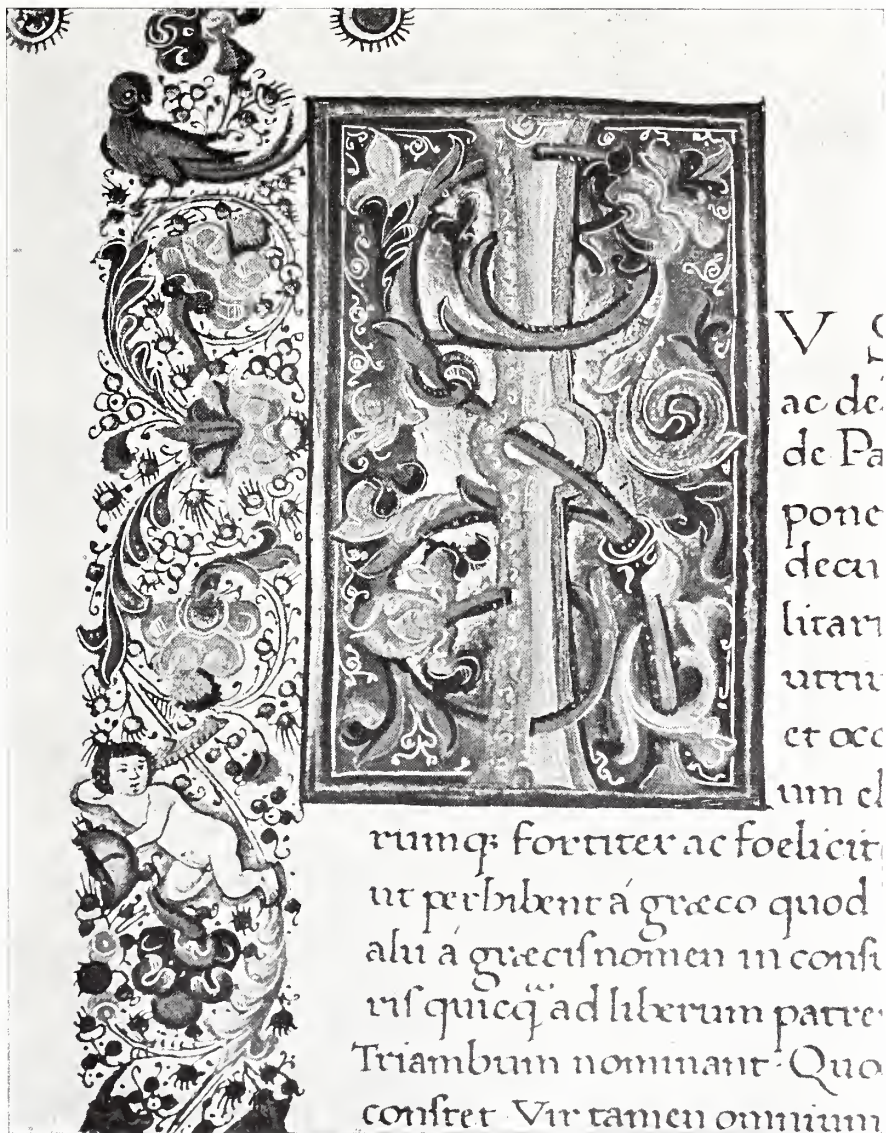 V S
ac de
de Pa
pone
decu
litari
utriu
et occ
um el
rumq; fortiter ac foelicit
ut perhibent á græco quod
alii á græcis nomen in consu
ris quicq ad liberum patre
Triambum nominant· Quo
constet Vir tamen omnium